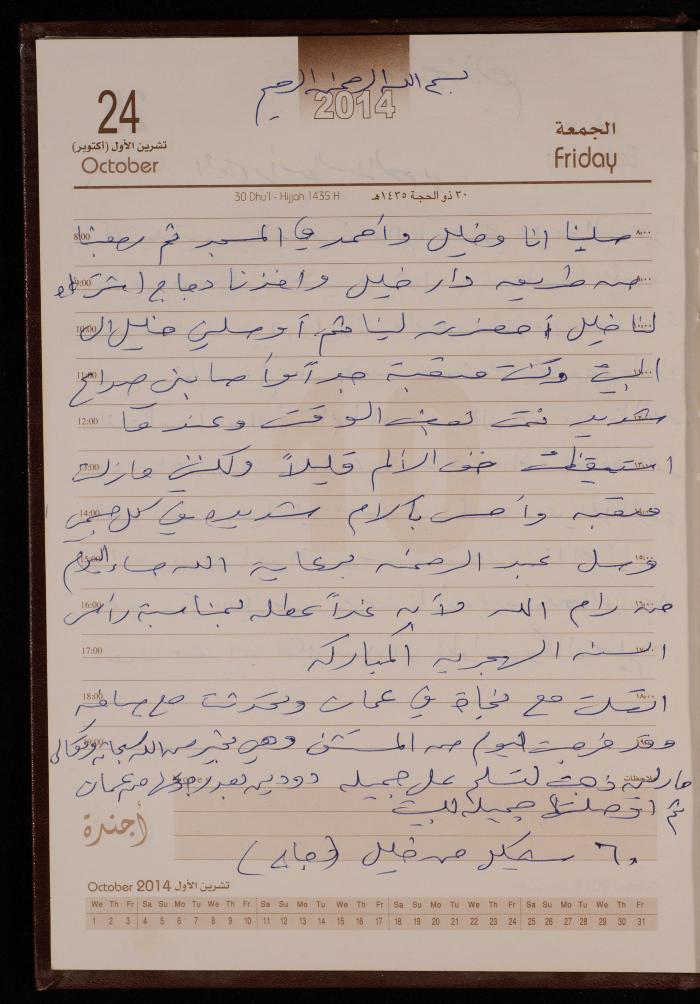 بسم الله الرحمن الرحيم
2014
24
تشرين الأول (أكتوبر)
October
الجمعة
Friday
30 Dhu'l - Hijjah 1435 H
٣٠ ذو الحجة ١٤٣٥هـ
8:00 صلينا انا وخليل وأحمد في المسجد ثم رجعنا ٨:٠٠
9:00 من طريق دار خليل وأخذنا دجاج اشتراه ٩:٠٠
10:00 لنا خليل أحضرته لينا ثم أوصلني خليل الى ١٠:٠٠
11:00 البيت وكنت متعبة جداً وأصابني صداع ١١:٠٠
12:00 شديد نمت لبعض الوقت وعندما ١٢:٠٠
13:00 استيقظت خف الألم قليلاً ولكنني مازلت ١٣:٠٠
14:00 متعبه وأحس بآلام شديده في كل جسمي ١٤:٠٠
15:00 وصل عبد الرحمن برعاية الله مساء اليوم ١٥:٠٠
16:00 من رام الله لأن غداً عطله بمناسبة رأس ١٦:٠٠
17:00 السنه الهجريه المباركه ١٧:٠٠
18:00 اتصلت مع نجاة في عمان وتحدثت مع صافيه ١٨:٠٠
وقد خرجت اليوم من المستشفى وهي بخير من الله سبحانه وتعالى
مارلين ذهبت لتسلم على جميله دودين بعد رجوعها من عمان
ملاحظات
ثم أوصلتها جميله للبيت
أجندة
٦٠ شيكل من خليل (دجاج)
October 2014 تشرين الأول
We Th Fr Sa Su Mo Tu We Th Fr Sa Su Mo Tu We Th Fr Sa Su Mo Tu We Th Fr Sa Su Mo Tu We Th Fr
1 2 3 4 5 6 7 8 9 10 11 12 13 14 15 16 17 18 19 20 21 22 23 24 25 26 27 28 29 30 31